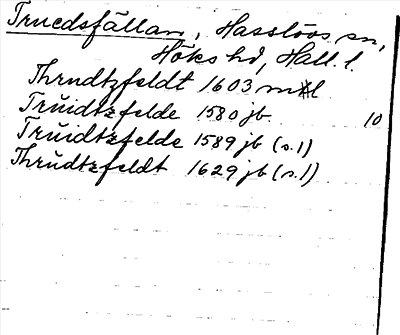 Truedsfällan, Hasslövs sn,
Höks hd, Hall. l.
Thrudtzfeldt 1603 mtl
Trŭidtzfelde 1580 jb 10
Trŭidtzfelde 1589 jb (s. 1)
Thrŭdtzfeldt 1629 jb (s. 1)